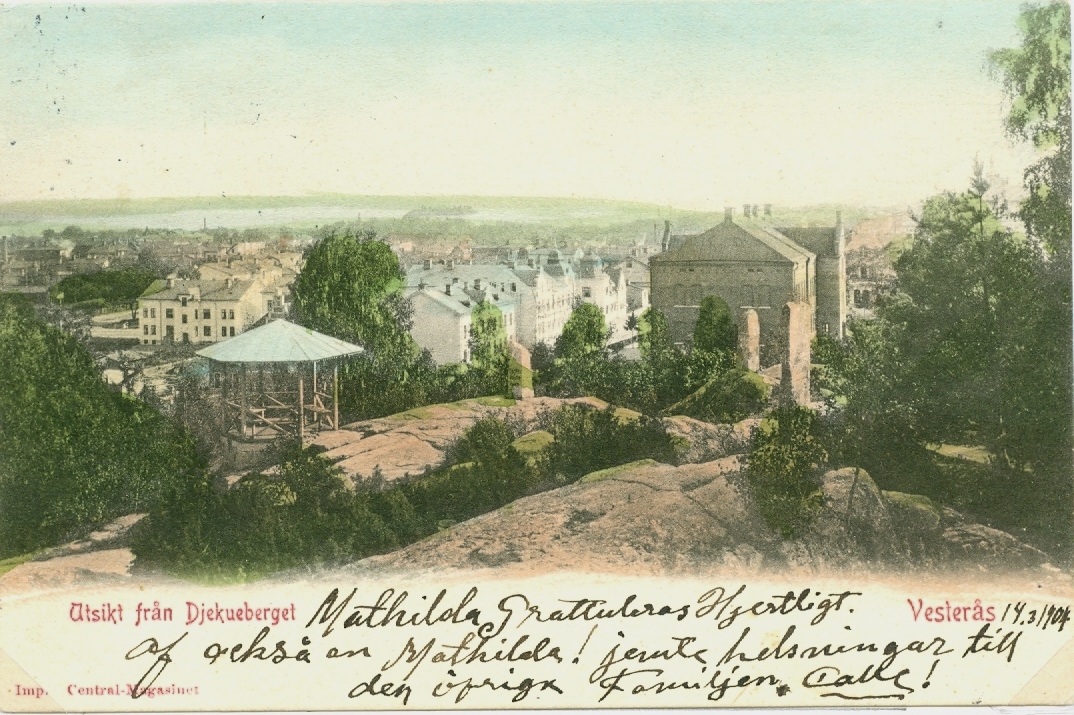 Utsikt från Djekueberget Mathilda Grattuleras Hjertligt. Vesterås 14.3/1904
af också en Mathilda! jemte helsningar till
Imp. Central-Magasinet den öfriga Familjen. Calle!